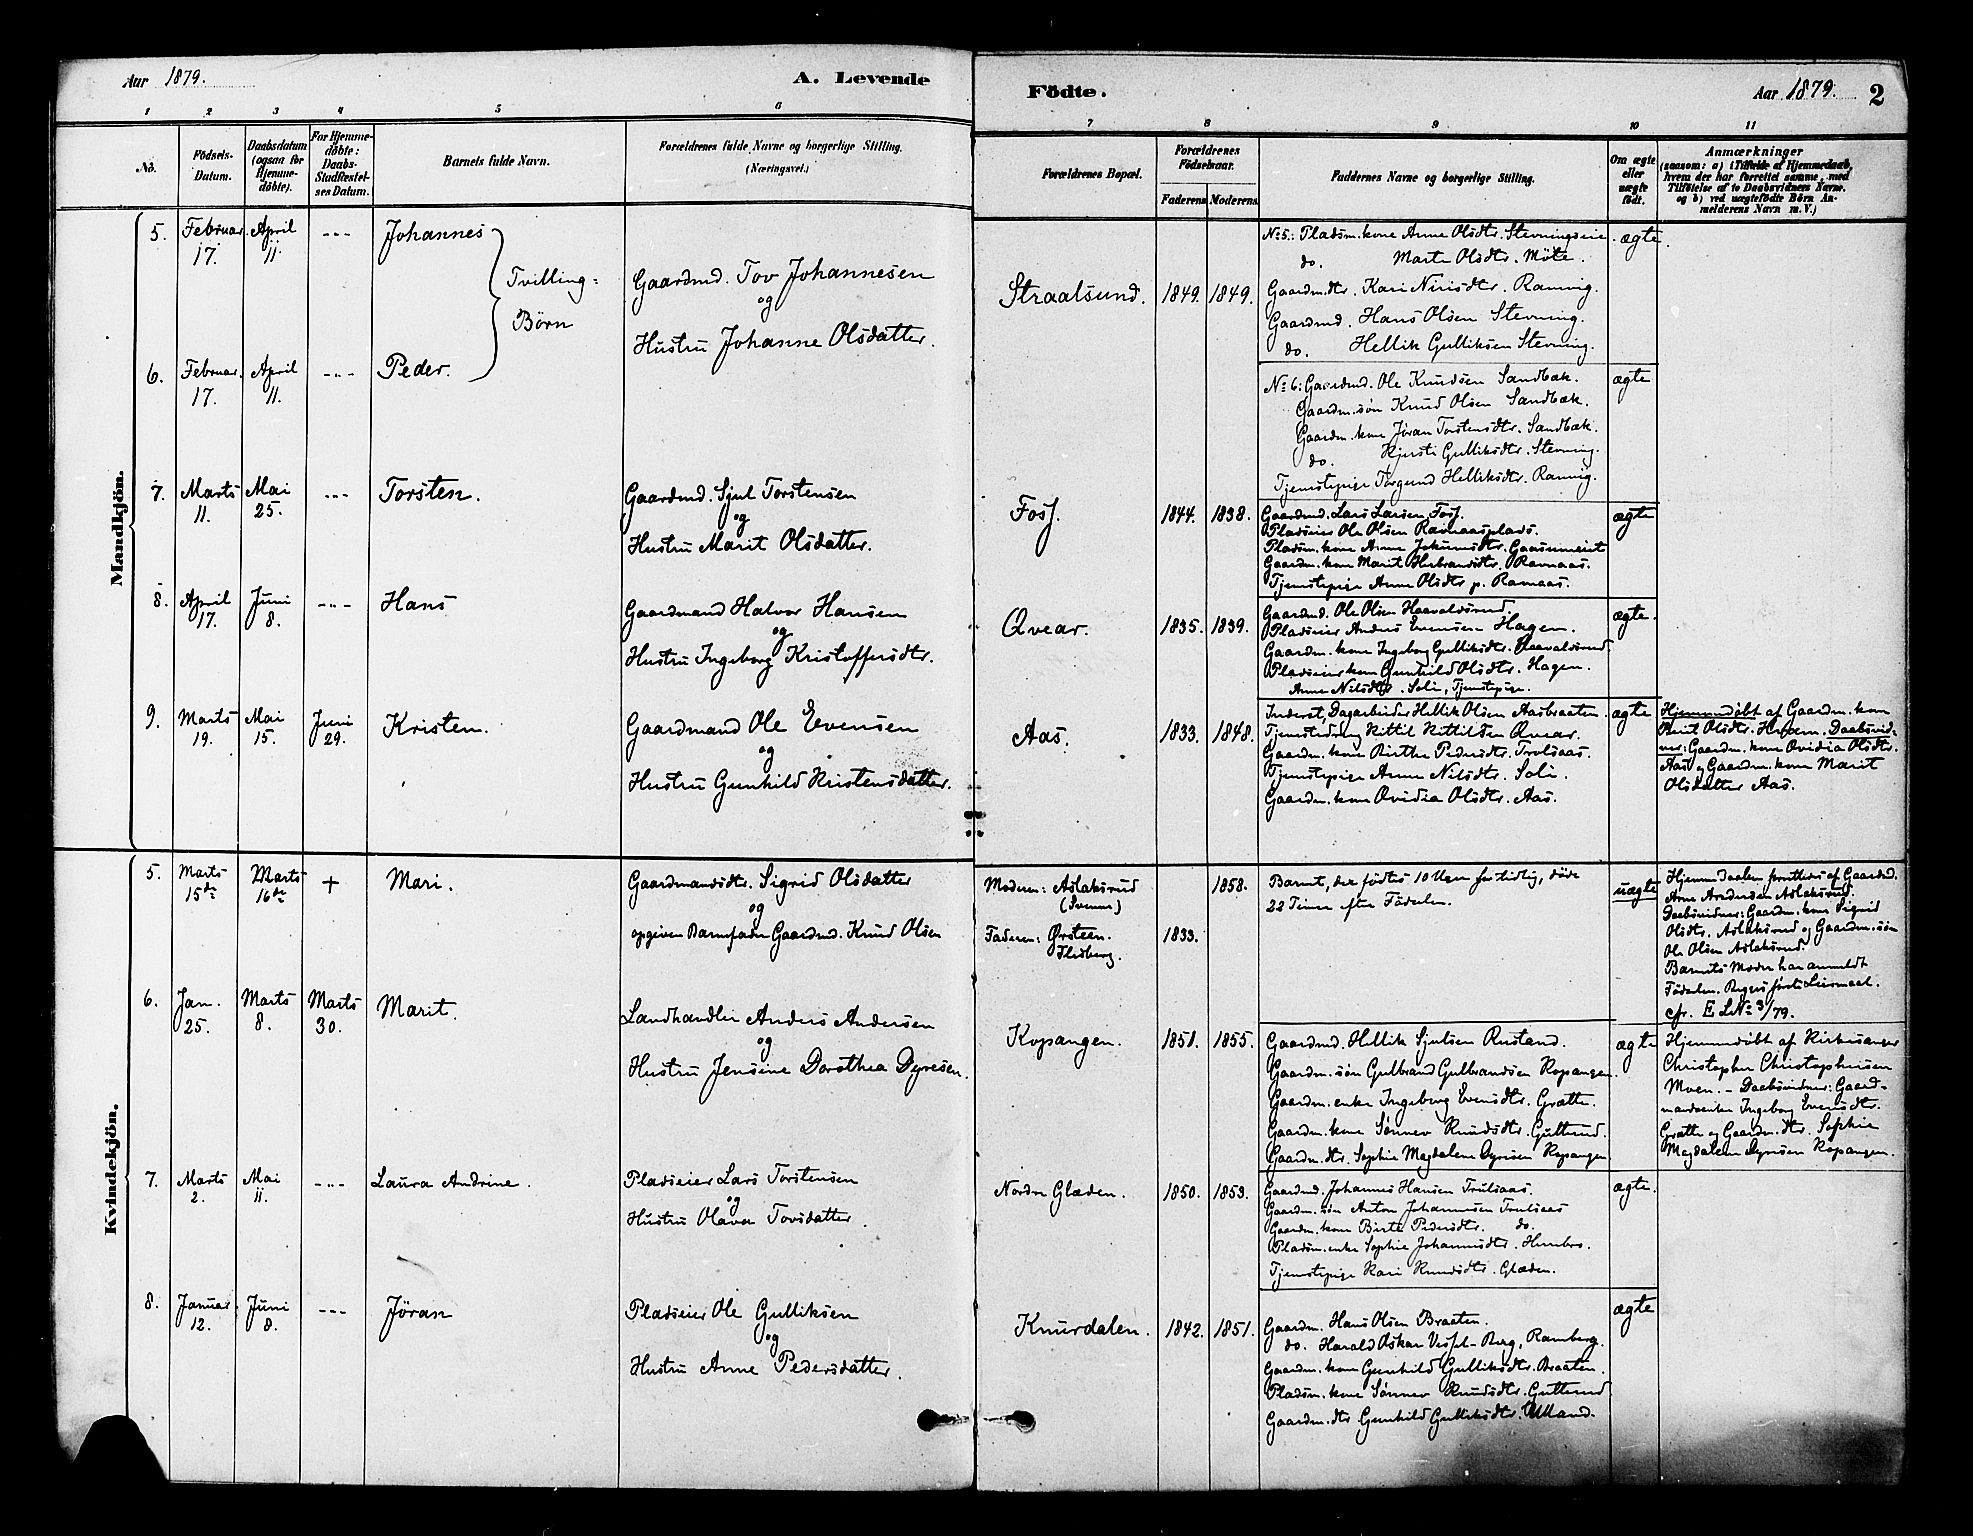 Aar 1879.
A. Levende
1 2 3 4 5 6
No.
Födsels-
Datum.
Daabsdatum
(ogsaa for
Hjemme-
döbte).
For Hjemme-
döbte:
Daabs-
Stadfæstel-
ses Datum.
Barnets fulde Navn.
Forældrenes fulde Navne og borgerlige Stilling.
(Næringsvei.)
Mandkjön.
5. Februar 17. April 11. -"- Johannes
Tvilling-
Børn
Gaardmd. Tov Johannesen
og
Hustru Johanne Olsdatter.
6. Februar 17. April 11. -"- Peder.
7. Marts 11. Mai 25. -"- Torsten.
Gaardmd. Sjul Torstensen
og
Hustru Marit Olsdatter.
8. April 17. Juni 8. -"- Hans
Gaardmand Halvor Hansen
og
Hustru Ingeborg Kristoffersdtr.
9. Marts 19. Mai 15. Juni 29. Kristen.
Gaardmand Ole Evensen
og
Hustru Gunhild Kristensdatter.
Kvindekjön.
5. Marts 15de Marts 16de + Mari.
Gaardmandsdtr. Sigrid Olsdatter
og
opgiven Barnefader Gaardmd. Knud Olsen
6. Jan. 25. Marts 8. Marts 30. Marit.
Landhandler Anders Andersen
og
Hustru Jensine Dorothea Dyresen.
7. Marts 2. Mai 11. -"- Laura Andrine.
Pladseier Lars Torstensen
og
Hustru Olava Tovsdatter.
8. Januar 12. Juni 8. -"- Jöran
Pladseier Ole Gulliksen
og
Hustru Anne Pedersdatter.
Födte.
Aar 1879. 2
7 8 9 10 11
Forældrenes Bopæl.
Forældrenes
Födselsaar.
Faderens Moderens
Faddernes Navne og borgerlige Stilling.
Om ægte
eller
uægte
födt.
Anmærkninger
(saasom: a) i Tilfælde af Hjemmedaab,
hvem der har forrettet samme, med
Tilföielse af to Daabsvidners Navne.
og b) ved uægtefödte Börn An-
melderens Navn m. V.)
Straalsund. 1849. 1849.
No 5: Pladsm. kone Anne Olsdtr. Stevningseie
do. Marte Olsdtr. Möte.
Gaardm.dtr. Kari Nirisdtr. Ramvig.
Gaardmd. Hans Olsen Stevning.
do. Hellik Gulliksen Stevning.
ægte.
No 6: Gaardmd. Ole Knudsen Sandbæk.
Gaardm. søn Knud Olsen Sandbæk.
Gaardm. kone Jöran Torstensdtr. Sandbæk.
do. Kjersti Gulliksdtr. Stevning.
Tjenstepige Torgund Helliksdtr. Ramvig.
ægte
Fosf. 1844. 1838.
Gaardmd. Lars Larsen Fosf.
Pladseier Ole Olsen Ravnaasplads.
Pladsm. kone Anne
Gaardm. kone Marit Ravnaas.
Tjenstepige Anne Olsdtr p. Ravnaas.
ægte
Qvear. 1835. 1839.
Gaardmd. Ole Olsen Haavaldsrud.
Pladseier Anders Evensen Hagen.
Gaardm. kone Ingeborg Gulliksdtr. Haavaldsrud
Pladseier kone Gunhild Olsdtr. Hagen.
Anne Nilsdtr. Soli, Tjenstepige.
ægte.
Aas. 1833. 1848.
Inderst, Dagarbeider Hellik Olsen Aasbraaten.
Tjenstedreng Kittil Kittilsen Qvear.
Gaardm. kone Birthe Pedersdtr. Trolsaas.
Tjenstepige Anne Nilsdtr. Soli.
Gaardm. kone Ovidia Olsdtr. Aas.
ægte
Hjemmedøbt af Gaardm. kone
Olsdtr. Daabsvid-
ner: Gaardm. kone Ovidia Olsdtr.
Aas og Gaardm. kone Marit
Olsdatter Aas.
Moderen: Aslaksrud
(Svenne)
Faderen: Ørsteen.
Flesberg.
1833. 1858.
Barnet, der fødtes 10 Uger for tidlig, døde
22 Timer efter Fødselen.
uægte
Hjemmedaaben forrettedes af Gaardmd.
Arne Aslaksrud.
Daabsvidner: Gaardm. kone Sigrid
Olsdtr. Aslaksrud og Gaardm. søn
Ole Olsen Aslaksrud.
Barnets Moder har anmeldt
Fødselen. Begges første Leiermaal.
cfr. E L No 3/79.
Kopangen. 1851. 1855.
Gaardmd. Hellik Sjulsen Rustand.
Gaardm. søn Gulbrand Gulbrandsen Kopangen
Gaardm. enke Ingeborg Evensdtr. Grætte.
Gaardm. kone Sønnev Knudsdtr. Gutterud.
Gaardm. dtr. Sophie Magdalene Dyresen Kopangen
ægte
Hjemmedøbt af Kirkesanger
Christopher Christophersen
Moen. - Daabsvidner: Gaard-
mandsenke Ingeborg Evensdtr.
Grætte og Gaardm. dtr. Sophie
Magdalene Dyresen Kopangen.
Nordre Glæden. 1850. 1853.
Gaardmd. Johannes Hansen Trulsaas.
Gaardm. søn Anton Johannesen Trulsaas
Gaardm. kone Birte Pedersdtr. do.
Pladsm. enke Sophie Johannesdtr.
Tjenstepige Kari Knudsdtr. Glæden.
ægte.
Knurdalen. 1842. 1851.
Gaardm. Hans Olsen Braaten.
do. Harald Oskar Berg, Ramberg.
Gaardm. kone Gunhild Gulliksdtr. Braaten
Pladsm. kone Sønnev Knudsdtr. Gutterud
Gaardm. dtr. Gunhild Gulliksdtr. Ulland.
ægte